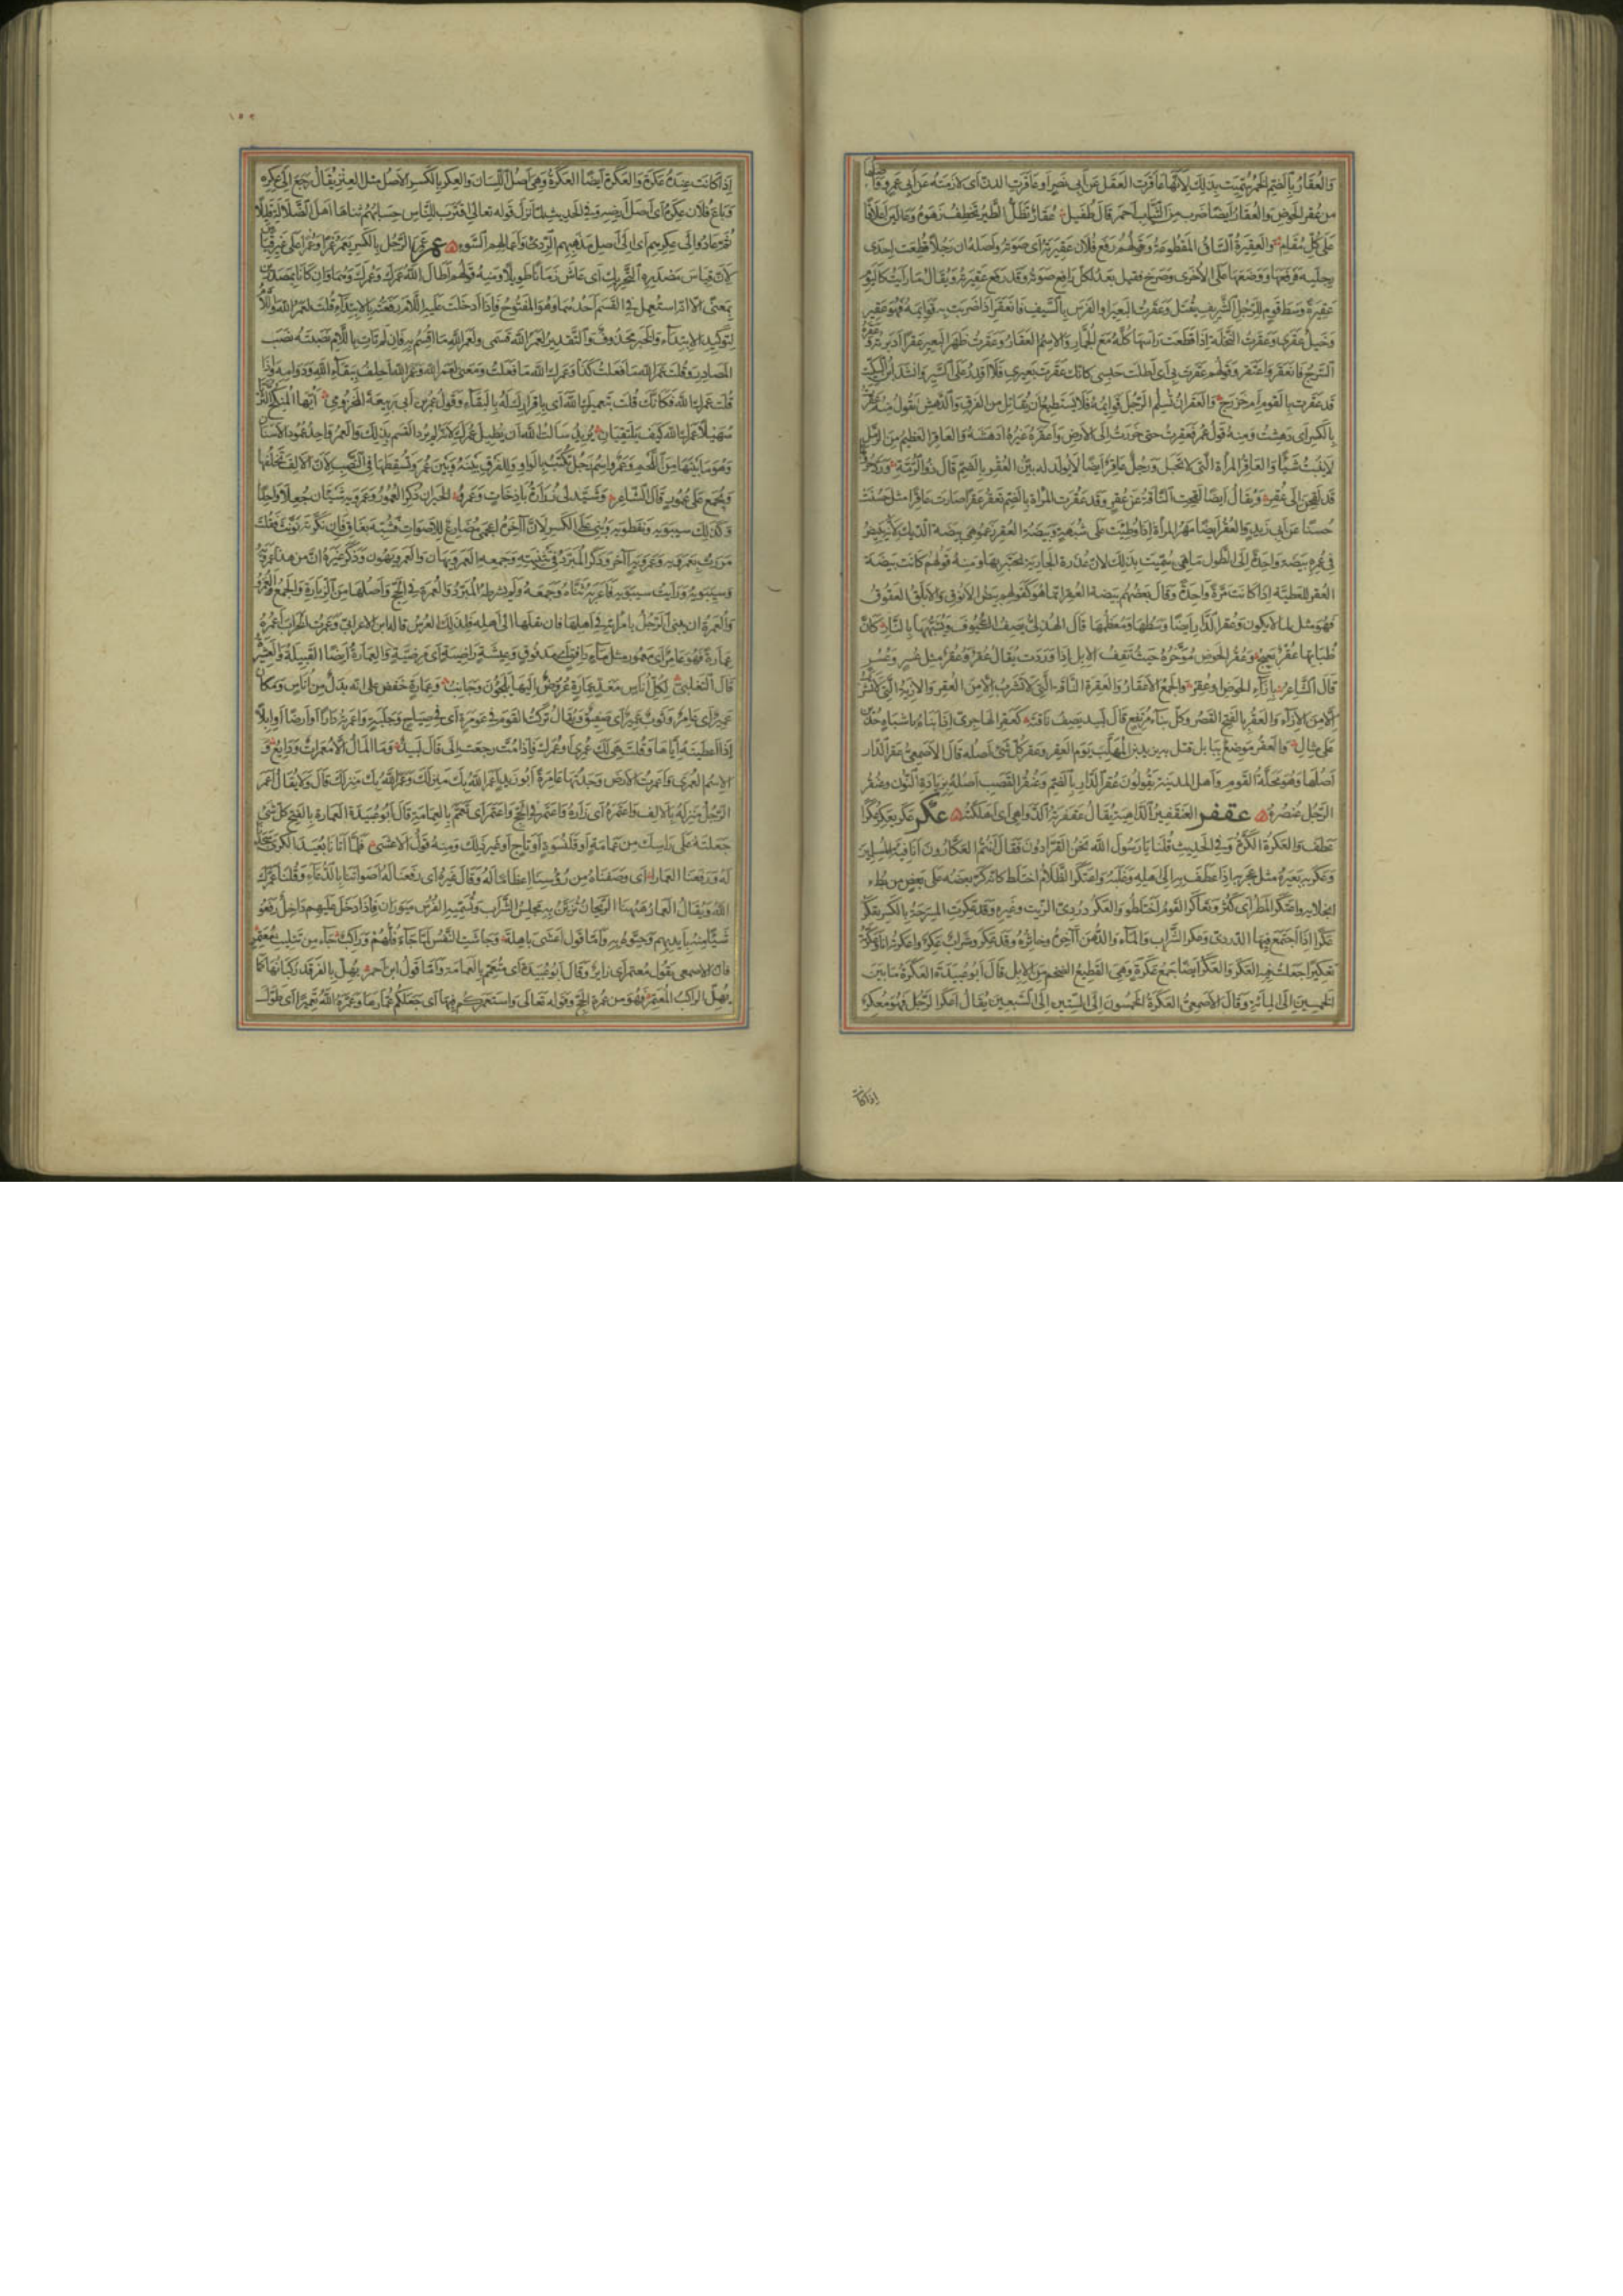 والعُقارُ بالضم الخمرُ سُمّيت بذلك لأنها عاقرت العقل عن أبي نصر أو عاقرت الدن أي لازمته عن أبي عمرو
من عُقر الحوض والعُقار أيضا ضرب من الثياب أحمر قال طفيل عُقارٌ تظل الطير تخطف زهوه وعالين أعلاقا
على كل مُفأم والعقيرة الساق المقطوعة وقولهم رفع فلان عقيرته أي صوته وأصله أن رجلا قطعت إحدى
رجليه فرفعها ووضعها على الأخرى وصرخ فقيل بعد لكل رافع صوته قد رفع عقيرته ويقال ما رأيت كاليوم
عقيرة وسط قوم للرجل الشريف يقتل وعقرت البعير أو الفرس بالسيف فانعقر إذا ضربت به قوائمه فهو عقير
وخيل عقرى وعقرت النخلة إذا قطعت رأسها كله مع الجمار والاسم العقار وعقرت ظهر البعير عقرا أدبرته
السرج فانعقر واعتقر وقولهم عقرت بي أي أطلت حبسي كأنك عقرت بعيري فلا أقدر على السير وأنشد ابن السكيت
قد عقرت بالقوم أم خزرج والعقر أن تسلم الرجل قوائمه فلا يستطيع أن يقاتل من الفرق والدهش تقول منه عقر
بالكسر أي دهشت ومنه قول عمر فعقرت حتى خررت إلى الأرض وأعقره غيره أدهشه والعاقر العظيم من الرمل
لا ينبت شيئا والعاقر المرأة التي لا تحبل ورجل عاقر أيضا لا يولد له بين العقر بالضم قال ذو الرمة
قد لقحن إلى عقر ويقال أيضا لقحت الناقة عن عقر وقد عقرت المرأة بالضم تعقر عقرا صارت عاقرا مثل حسنت
حسنا عن أبي زيد والعقر أيضا مهر المرأة إذا وطئت على شبهة وبيضة العقر زعموا هي بيضة الديك لأنه يبيض
في عمره بيضة واحدة إلى الطول ما هي سميت بذلك لأن عذرة الجارية تختبر بها ومنه قولهم كانت بيضة
العقر للعطية إذا كانت مرة واحدة وقال بعضهم بيضة العقر إنما هو كقولهم بيض الأنوق والأبلق العقوق
فهو مثل لما لا يكون وعقر الدار أيضا وسطها ومعظمها قال الهذلي يصف السيوف
ظباتها عقر بعيج وعقر الحوض مؤخره حيث تقف الإبل إذا وردت يقال عقر وعقر مثل عسر وعسر
قال الشاعر بإزاء الحوض أو عقره والجمع الأعقار والعقرة الناقة التي لا تشرب إلا من العقر والأزية التي لا تشرب
إلا من الإزاء والعقر بالفتح القصر وكل بناء مرتفع قال لبيد يصف ناقته كعقر الهاجري إذا ابتناه بأشباه حذين
على مثال والعقر موضع ببابل قتل به يزيد بن المهلب يوم العقر وعقر كل شيء أصله قال الأصمعي عقر الدار
أصلها وهو محلة القوم وأهل المدينة يقولون عقر الدار بالضم وعنقر القصب أصله بزيادة النون وعنقر
الرجل عنصره عقفر العنقفير الداهية يقال عقفرته الدواهي أي أهلكته عكر عكر يعكر عكرا
عطف والعكرة الكرة وفي الحديث قلنا يا رسول الله نحن الفرارون فقال أنتم العكارون أنا فئة المسلمين
وعكر به بعيره مثل عجر به إذا عطف به إلى أهله وغلبه واعتكر الظلام اختلط كأنه كر بعضه على بعض من بطء
انجلائه واعتكر المطر أي كثر وتعاكر القوم اختلطوا والعكر دردي الزيت وغيره وقد عكرت المسرجة بالكسر تعكر
عكرا إذا اجتمع فيها الدردي وعكر الشراب والماء والدهن آخره وخاثره وقد عكر وشراب عكر وأعكرته أنا وعكرته
تعكيرا جعلت فيه العكر والعكر أيضا جمع عكرة وهي القطيع الضخم من الإبل قال أبو عبيدة العكرة ما بين
الخمسين إلى المائة وقال الأصمعي العكرة الخمسون إلى الستين إلى السبعين يقال أعكر الرجل فهو معكر
إذا كانت
إذا كانت عنده عكرة والعكرة أيضا العكدة وهي أصل اللسان والعكر بالكسر الأصل مثل العتر يقال رجع إلى عكره
وباع فلان عكره أي أصل أرضه وفي الحديث لما نزل قوله تعالى اقترب للناس حسابهم تناهى أهل الضلالة قليلا
ثم عادوا إلى عكرهم أي إلى أصل مذهبهم الردئ وأعمالهم السوء عمر عمر الرجل بالكسر يعمر عمرا وعمرا على غير قياس
لأن قياس مصدره التحريك أي عاش زمانا طويلا ومنه قولهم أطال الله عمرك وعمرك وهما وإن كانا مصدرين
بمعنى إلا أنه استعمل في القسم أحدهما وهو المفتوح فإذا أدخلت عليه اللام رفعته بالابتداء قلت لعمر الله واللام
لتوكيد الابتداء والخبر محذوف والتقدير لعمر الله قسمي ولعمر الله ما أقسم به فإن لم تأت باللام نصبته نصب
المصادر وقلت عمر الله ما فعلت كذا وعمرك الله ما فعلت ومعنى لعمر الله وعمر الله أحلف ببقاء الله ودوامه وإذا
قلت عمرك الله فكأنك قلت بتعميرك الله أي بإقرارك له بالبقاء وقول عمر بن أبي ربيعة المخزومي أيها المنكح الثريا
سهيلا عمرك الله كيف يلتقيان يريد سألت الله أن يطيل عمرك لأنه لم يرد القسم بذلك والعمر واحد عمور الأسنان
وهو ما بينها من اللحم وعمرو اسم رجل يكتب بالواو للفرق بينه وبين عمر وتسقطها في النصب لأن الألف تخلفها
ويجمع على عمور قال الشاعر وشيد لي زرارة باذخات وعمرو الخير إن ذكر العمور وعمرويه شيئان جعلا واحدا
وكذلك سيبويه ونفطويه وبني على الكسر لأن آخره أعجمي مضارع للأصوات فشبه بغاق فإن نكرته نونت فقلت
مررت بعمرويه وعمرويه آخر وذكر المبرد في تثنيته وجمعه العمرويهان والعمرويهون وذكر غيره أن من قال هذا عمرويه
وسيبويه ورأيت سيبويه فأعربه ثناه وجمعه ولم يشرطه المبرد والعمرة في الحج وأصلها من الزيارة والجمع العمر
والعمرة أن يبني الرجل بامرأته في أهلها فإن نقلها إلى أهله فذلك العرس قاله ابن الأعرابي وعمرت الخراب أعمره
عمارة فهو عامر أي معمور مثل ماء دافق أي مدفوق وعيشة راضية أي مرضية والعمارة أيضا القبيلة والعشيرة
قال التغلبي لكل أناس من معد عمارة عروض إليها يلجؤن وجانب وعمارة خفض على أنه بدل من أناس ومكان
عمير أي عامر وثوب عمير أي صفيق ويقال تركت القوم في عومرة أي في صياح وجلبة وأعمرته دارا أو أرضا أو إبلا
إذا أعطيته إياها وقلت هي لك عمري أو عمرك فإذا مت رجعت إلي قال لبيد وما المال إلا معمرات ودائع و
الاسم العمرى وأعمرت الأرض وجدتها عامرة أبو زيد عمر الله بك منزلك وأعمر الله بك منزلك قال ولا يقال أعمر
الرجل منزله بالألف واعتمره أي زاره واعتمر في الحج واعتمر أي تعمم بالعمامة قال أبو عبيدة العمارة بالفتح كل شيء
جعلته على رأسك من عمامة أو قلنسوة أو تاج أو غير ذلك ومنه قول الأعشى فلما أتانا بعيد الكرى سجدنا
له ورفعنا العمارا أي وضعناه من رؤسنا إعظاما له وقال غيره أي رفعنا له أصواتنا بالدعاء وقلنا عمرك
الله ويقال العمار ههنا الريحان يزين به مجلس الشراب وتسميه الفرس ميوران فإذا دخل عليهم داخل رفعوا
شيئا منه بأيديهم وحيوه به وأما قول أعشى باهلة وجاشت النفس لما جاء فلهم وراكب جاء من تثليث معتمر
فإن الأصمعي يقول معتمر أي زائر وقال أبو عبيدة أي متعمم بالعمامة وأما قول ابن أحمر يهل بالفرقد ركبانها كما
يهل الراكب المعتمر فهو من عمرة الحج وقوله تعالى واستعمركم فيها أي جعلكم عمارها وعمره الله تعميرا أي طول